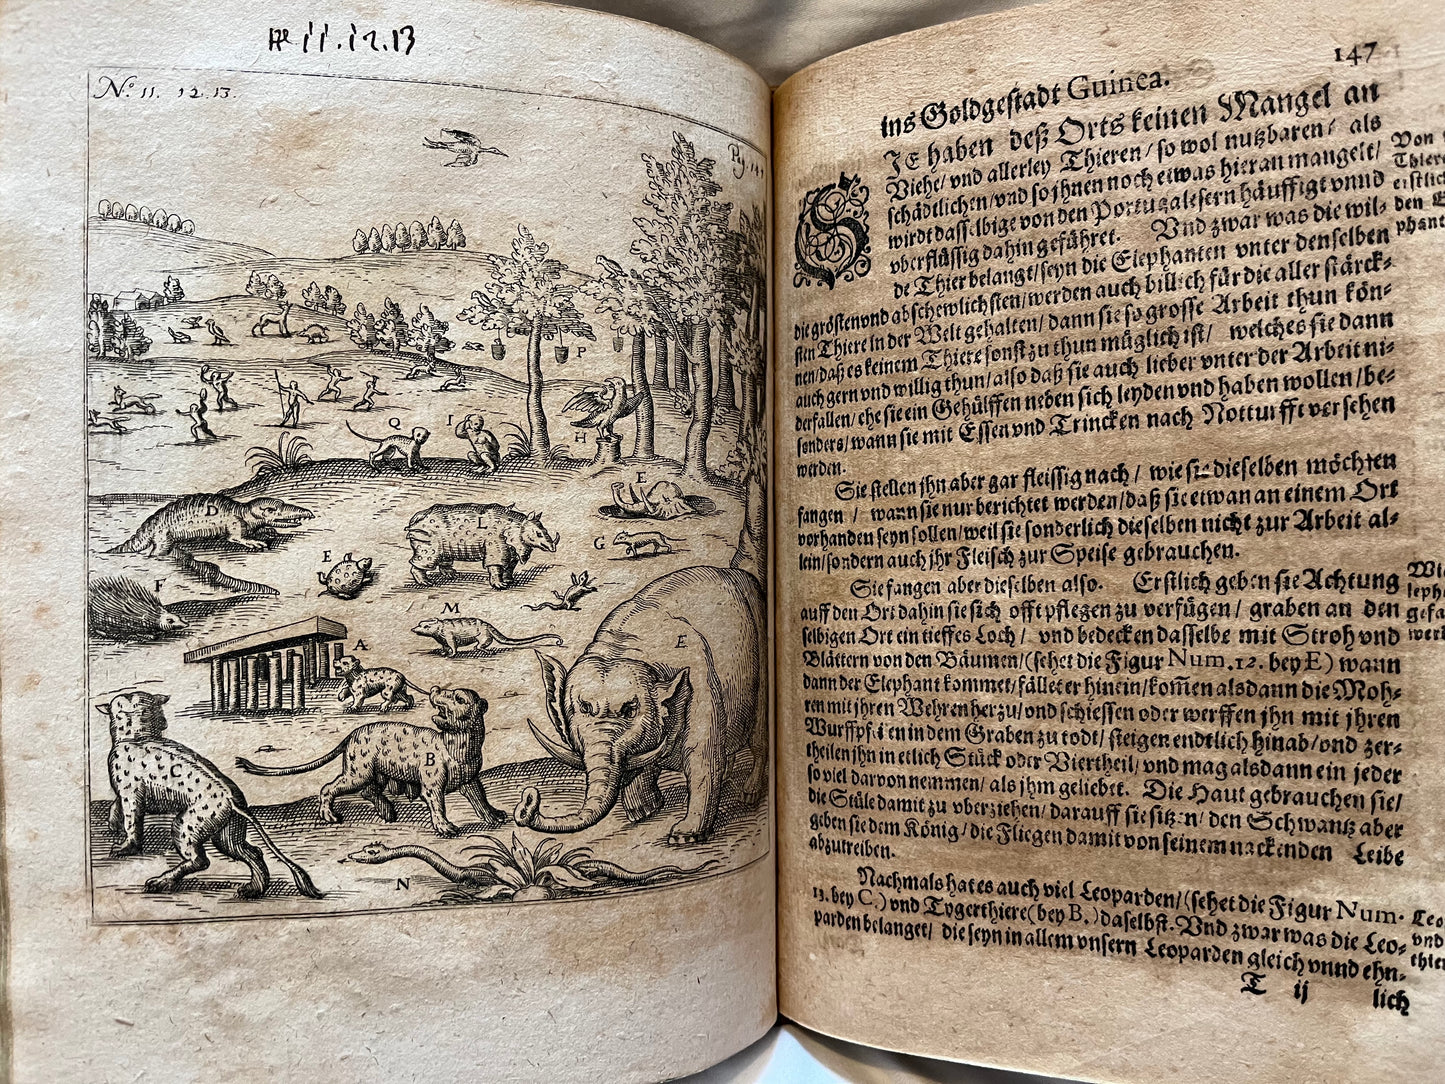 No 11. 12. 13
No. 11. 12. 13.
Pag. 147
P
Q
I
H
D
L
E
G
E
F
M
A
E
C
B
N
147
ins Goldgestadt Guinea.
SIE haben deß Orts keinen Mangel an
Viehe/ vnd allerley Thieren/ so wol nutzbaren/ als
schädtlichen/ vnd so jhnen noch etwas hieran mangelt/
wirdt dasselbige von den Portugalesern häuffigt vnnd
vberflüssig dahin geführet. Vnd zwar was die wil-
de Thier belangt/ seyn die Elephanten vnter denselben
die grösten vnd abschewlichsten/ werden auch billich für die aller stärck-
sten Thiere in der Welt gehalten/ dann sie so grosse Arbeit thun kön-
nen/ daß es keinem Thiere sonst zu thun müglich ist/ welches sie dann
auch gern vnd willig thun/ also daß sie auch lieber vnter der Arbeit ni-
derfallen/ ehe sie ein Gehülffen neben sich leyden vnd haben wollen/ be-
sonders/ wann sie mit Essen vnd Trincken nach Notturfft versehen
werden.
Sie stellen jhn aber gar fleissig nach/ wie sie dieselben möchten
fangen/ wann sie nur berichtet werden/ daß sie etwan an einem Ort
vorhanden seyn sollen/ weil sie sonderlich dieselben nicht zur Arbeit al-
lein/ sondern auch jhr Fleisch zur Speise gebrauchen.
Sie fangen aber dieselben also. Erstlich geben sie Achtung
auff den Ort dahin sie sich offt pflegen zu verfügen/ graben an den
selbigen Ort ein tieffes Loch/ vnd bedecken dasselbe mit Stroh vnd
Blättern von den Bäumen/ (sehet die Figur Num. 12. bey E) wann
dann der Elephant kommet/ fället er hinein/ kom̃en alsdann die Moh-
ren mit jhren Wehren herzu/ vnd schiessen oder werffen jhn mit jhren
Wurffpfeilen in dem Graben zu todt/ steigen endtlich hinab/ vnd zer-
theilen jhn in etlich Stück oder Viertheil/ vnd mag alsdann ein jeder
so viel darvon nemmen/ als jhm geliebet. Die Haut gebrauchen sie/
die Stüle damit zu vberziehen/ darauff sie sitzen/ den Schwantz aber
geben sie dem König/ die Fliegen damit von seinem nackenden Leibe
abzutreiben.
Nachmals hat es auch viel Leoparden/ (sehet die Figur Num.
13. bey C.) vnd Tygerthiere (bey B.) daselbst. Vnd zwar was die Leo-
parden belanget/ die seyn in allem vnsern Leoparden gleich vnnd ehn-
T ij lich
Von
Thiere
erstlich
den E
phant
Wie
leph
gefa
werd
Leo
vnd
thier